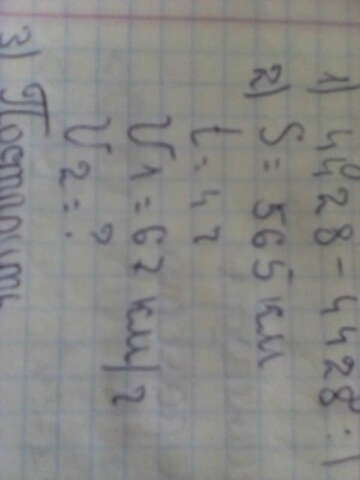 1) 4428 - 4428 : 1
2) S = 565 км
t = 4 ч
V1 = 67 км/ч
V2 = ?
3)